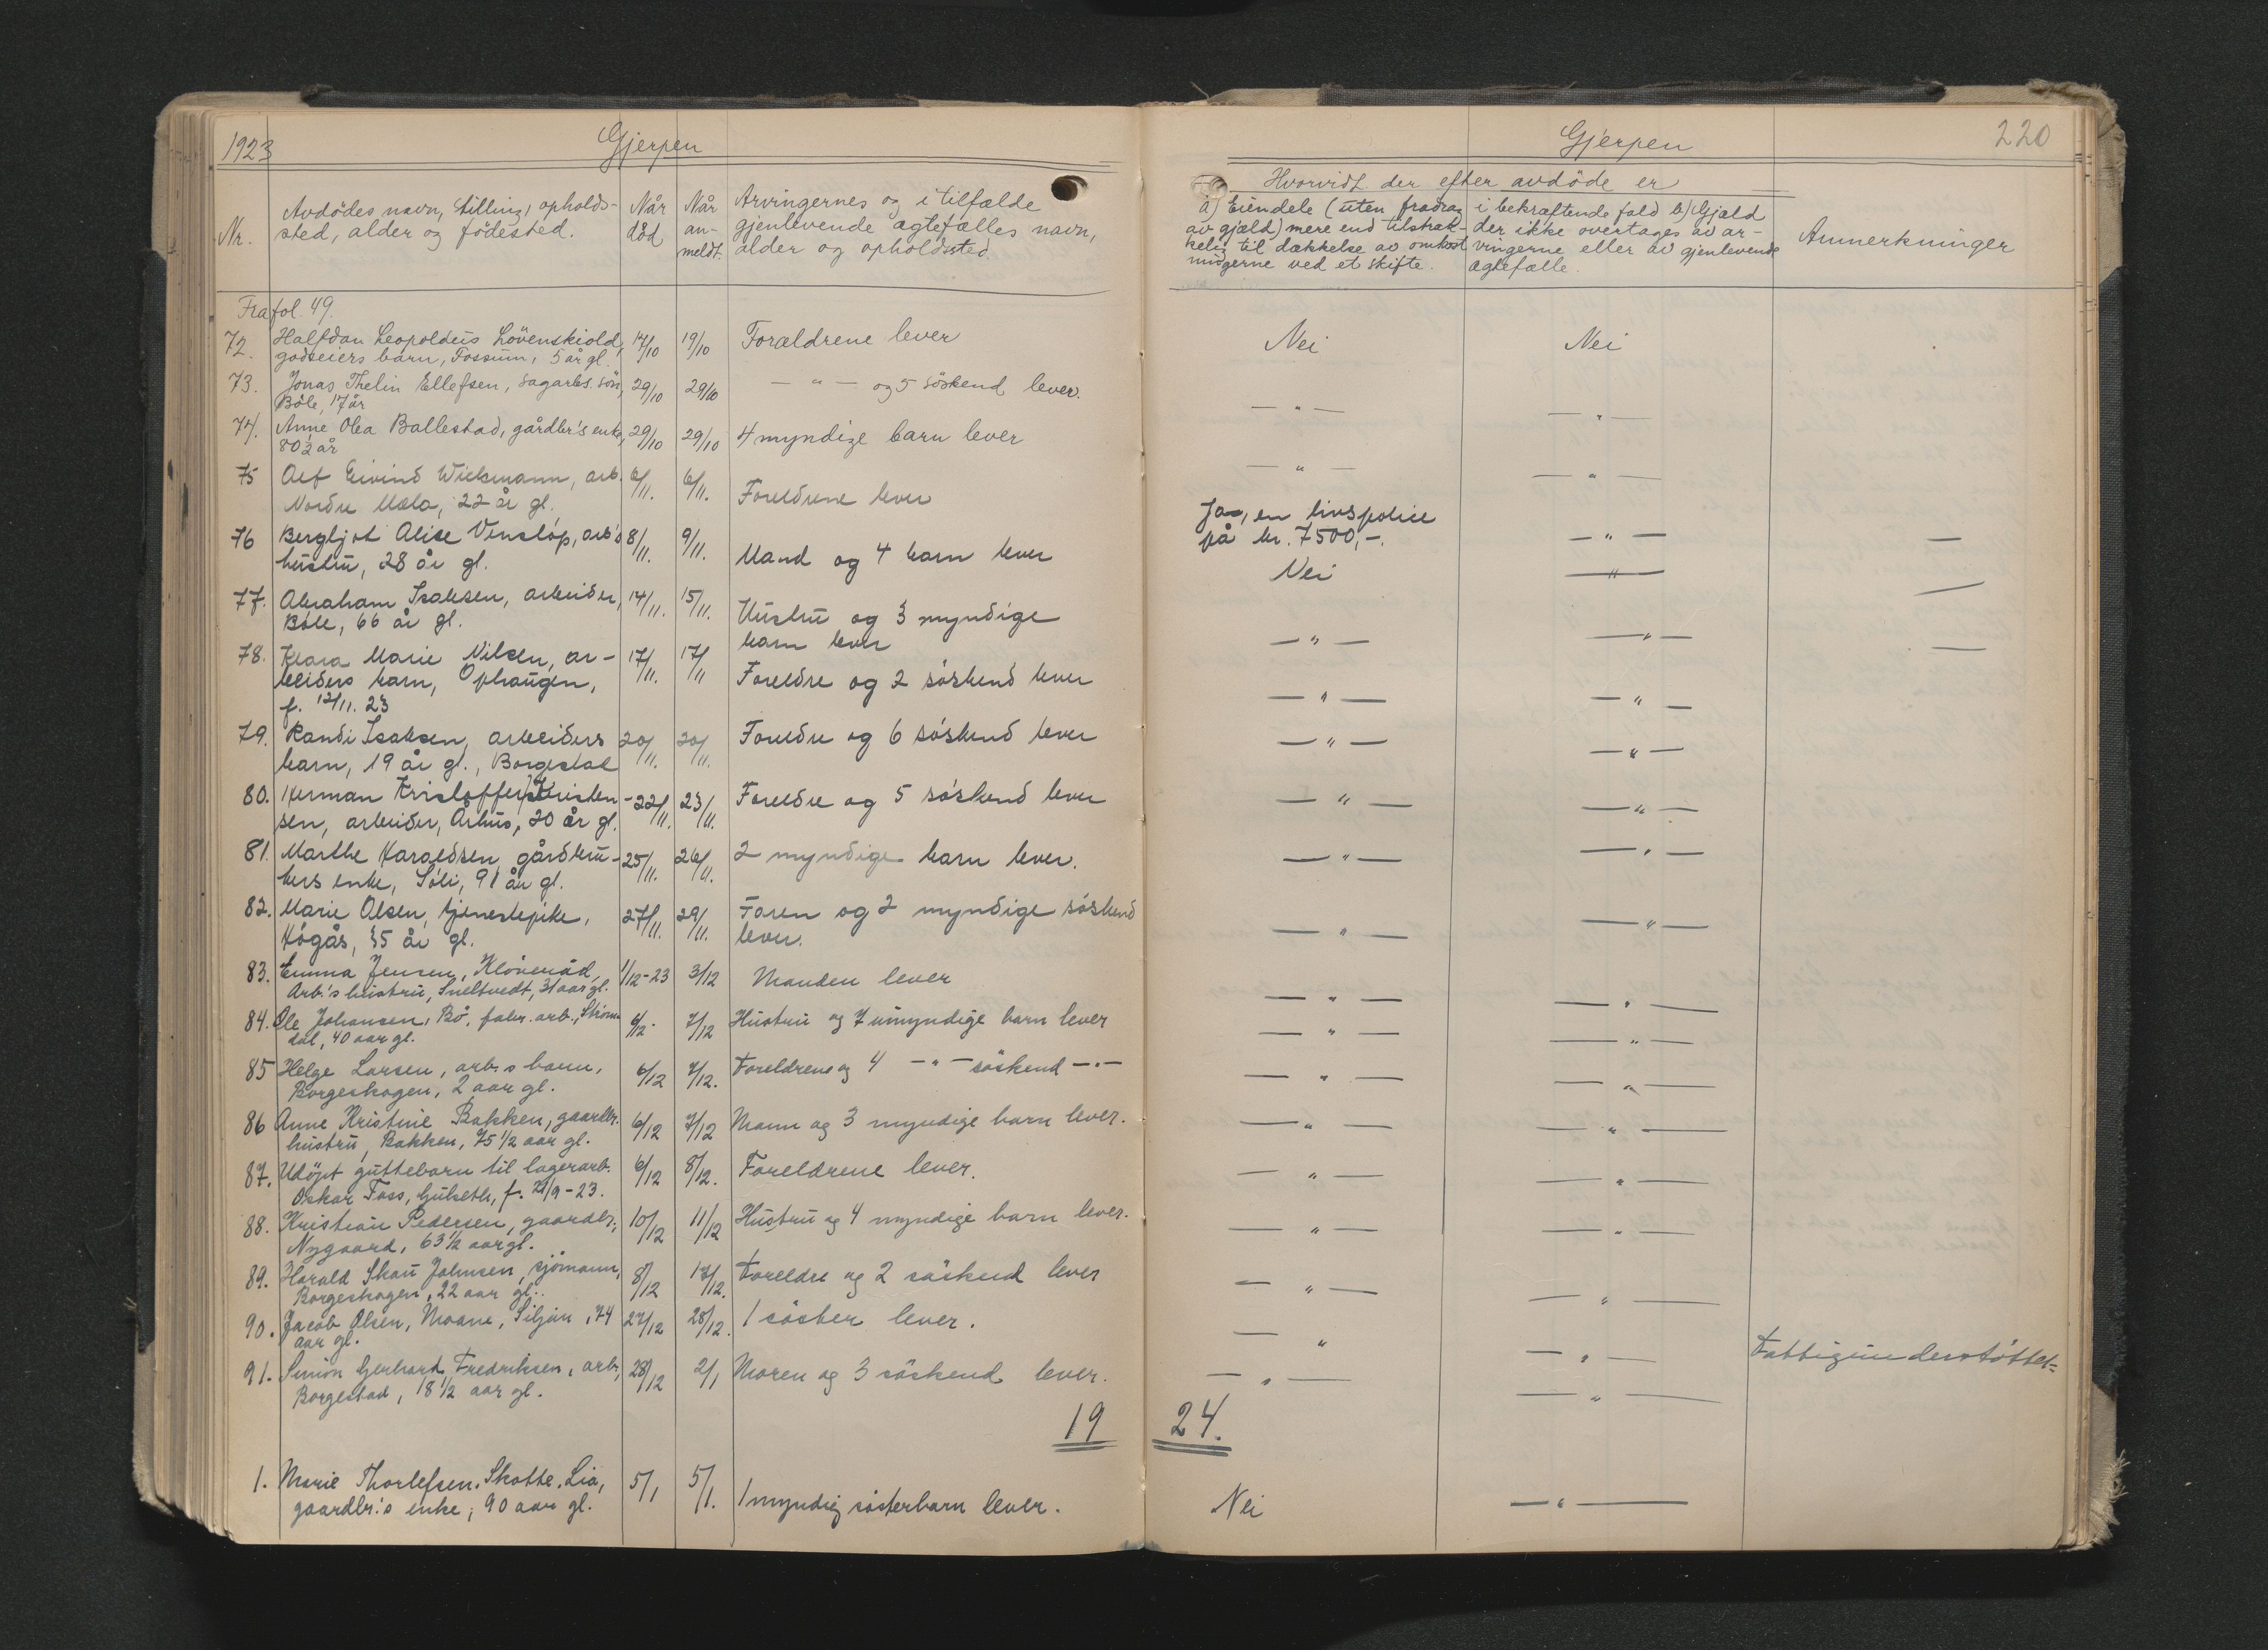 1923
Gjerpen
Nr.
Avdödes navn, stilling, opholds-
sted, alder og födested.
Når
död
Når
an-
meldt.
Arvingernes og i tilfælde
gjenlevende ægtefælles navn,
alder og opholdssted.
Fra fol. 49.
72. Halfdan Leopoldus Lövenskiold, 17/10 19/10 Forældrene lever
godseiers barn, Fossum, 5 år gl.
73. Jonas Thelin Ellefsen, sagarb.s. sön, 29/10 29/10 — " — og 5 söskend lever.
Böle, 17 år
74. Anne Olea Ballestad, gårdbr's enke, 29/10 29/10 4 myndige barn lever
80 1/2 år
75 Alf Eivind Wickmann, arb. 6/11. 6/11. Foreldrene lever
Nordre Mæla, 22 år gl.
76 Bergljot Alise Venslöp, arb's 8/11. 9/11. Mand og 4 barn lever
hustru, 28 år gl.
77. Abraham Isaksen, arbeider, 14/11. 15/11. Hustru og 3 myndige
Böle, 66 år gl. barn lever
78. Klara Marie Nilsen, ar- 17/11. 17/11 Foreldre og 2 söskend lever
beiders barn, Ophaugen,
f. 12/11. 23
79. Randi Isaksen, arbeiders 20/11. 20/11. Foreldre og 6 söskend lever
barn, 19 år gl., Borgestad
80. Herman Kristoffer Kristen- 22/11. 23/11. Foreldre og 5 söskend lever
sen, arbeider, Århus, 20 år gl.
81. Marthe Haraldsen, gårdbru- 25/11. 26/11. 2 myndige barn lever.
kers enke, Söli, 91 år gl.
82. Marie Olsen, tjenestepike, 27/11. 29/11. Faren og 2 myndige söskend
Högås, 35 år gl. lever.
83. Emma Jensen, Klövenåd, 1/12-23 3/12 Manden lever
Arb.'s hustru, Sneltvedt, 31 aar gl.
84. Ole Johansen, Bö, fabr. arb., Ström- 6/12. 7/12 Hustru og 7 umyndige barn lever
dal, 40 aar gl.
85 Helge Larsen, arb.s barn, 6/12 7/12. Foreldrene og 4 — " — söskend — " —
Borgeskogen, 2 aar gl.
86 Anne Kristine Bakken, gaardbr. 6/12 7/12 Mann og 3 myndige barn lever.
hustru, Bakken, 75 1/2 aar gl.
87. Udöpt guttebarn til lagerarb. 6/12 8/12. Foreldrene lever.
Oskar Foss, Gulseth, f. 21/9-23.
88. Kristian Pedersen, gaardbr., 10/12 11/12 Hustru og 4 myndige barn lever.
Nygaard, 63 1/2 aar gl.
89. Harald Skau Johnsen, sjömann, 8/12 17/12. Foreldre og 2 söskend lever
Borgeskogen, 22 aar gl..
90. Jacob Olsen, Moane, Siljan, 74 27/12 28/12. 1 söster lever.
aar gl.
91. Simon Gerhard Fredriksen, arb., 28/12 2/1 Moren og 3 söskend lever.
Borgestad, 18 1/2 aar gl.
19
1. Marie Thorlefsen, Skotte, Lia, 5/1 5/1. 1 myndig sösterbarn lever.
gaardbr.'s enke, 90 aar gl.
Gjerpen
220
Hvorvidt der efter avdöde er
a) Eiendele (uten fradrag
av gjæld) mere end tilstræk-
kelig til dækkelse av omkost
ningerne ved et skifte.
i bekræftende fald b) Gjæld
der ikke overtages av ar-
vingerne eller av gjenlevende
ægtefælle.
Anmerkninger
Nei Nei
— " — — " —
— " — — " —
Ja, en livspolice
på kr. 7500,-. — " — —
Nei — " — —
— " — — " — —
— " — — " —
— " — — " —
— " — — " —
— " — — " —
— " — — " —
— " — — " —
— " — — " —
— " — — " —
— " — — " —
— " — — " —
— " — — " —
— " — — " —
— " — — " — Fattigunderstöttet
— " — — " —
24.
Nei — " —